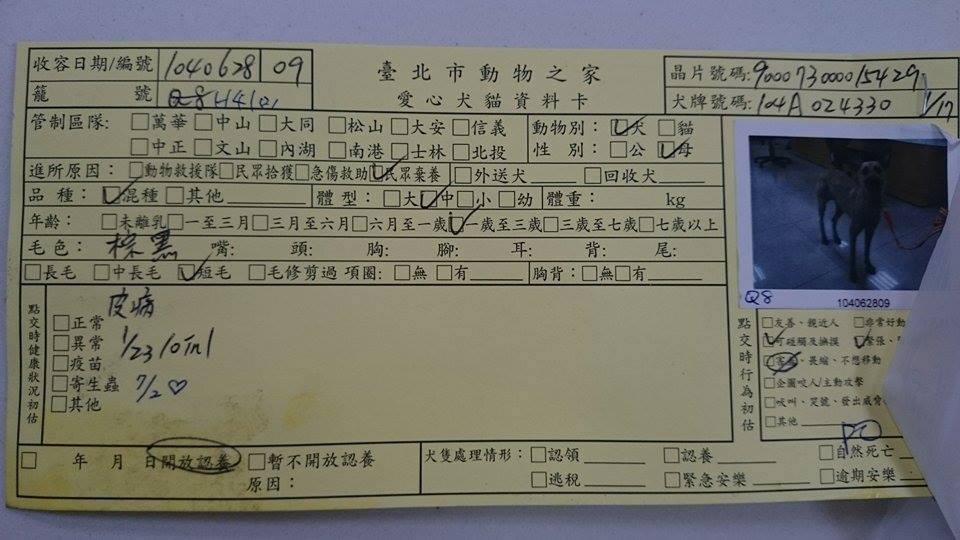 臺北市動物之家
愛心犬貓資料卡
收容日期/編號 1040628 09
籠 號 Q8
晶片號碼: 900073000015429
犬牌號碼: 104A 024330 1/17
管制區隊: □萬華□中山□大同 □松山□大安□信義
□中正□文山□內湖 □南港□士林□北投
動物別: ☑犬 □貓
性 別: □公 ☑母
進所原因: □動物救援隊□民眾拾獲□急傷救助☑民眾棄養 □外送犬 □回收犬
品 種: ☑混種 □其他 體 型: □大☑中□小□幼 體重: kg
年齡: □未離乳□一至三月□三月至六月□六月至一歲☑一歲至三歲□三歲至七歲□七歲以上
毛 色: 棕黑 嘴: 頭: 胸: 腳: 耳: 背: 尾:
□長毛 □中長毛 ☑短毛 □毛修剪過 項圈: □無 □有 胸背: □無□有
點交時健康狀況初估
皮病
□正常
□異常
□疫苗
□寄生蟲
□其他
1/23
7/2♡
Q8 104062809
點交時行為初估
□友善、親近人 □非常好動
☑可碰觸及撫摸 ☑緊張、
□害羞、畏縮、不想移動
□企圖咬人/主動攻擊
□吠叫、哭號、發出威脅
□其他
□ 年 月 日開放認養 □暫不開放認養
原因:
犬隻處理情形: □認領 □認養 □自然死亡
□逃稅 □緊急安樂 □逾期安樂